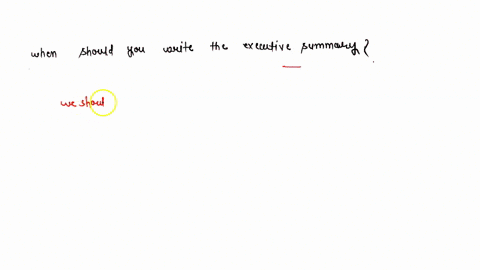 when should you write the executive summary?
we shoul